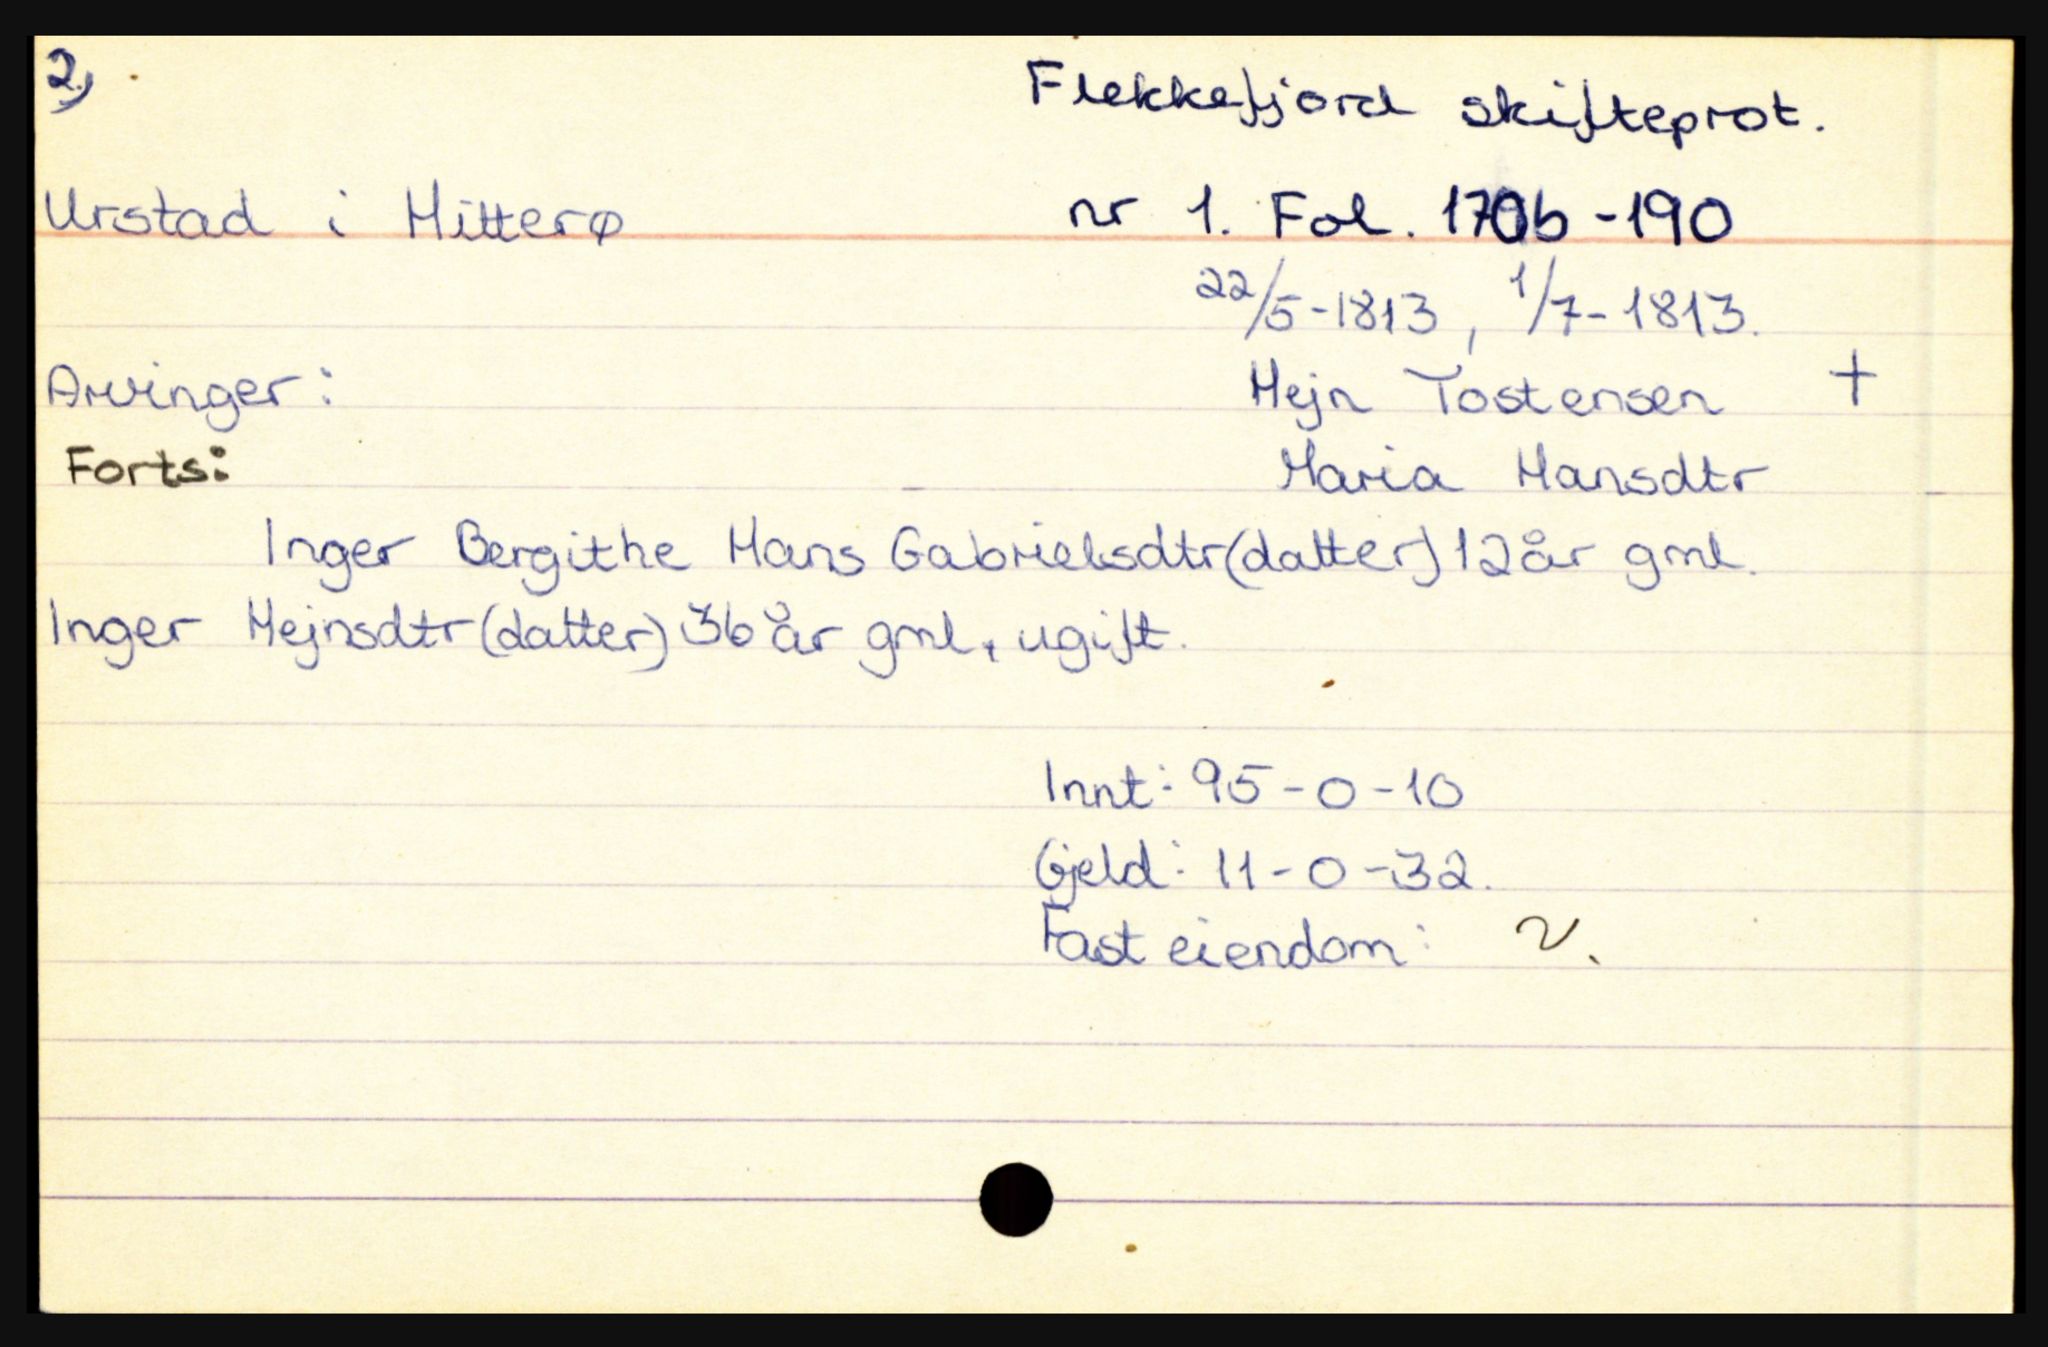 2,
Flekkefjord skifteprot.
Urstad i Hitterø
nr 1. Fol. 170b - 190
22/5-1813, 1/7-1813.
Arvinger:
Hejn Tostensen +
Forts:
Maria Hansdtr
Inger Bergithe Hans Gabrielsdtr (datter) 12 år gml.
Inger Hejnsdtr (datter) 36 år gml, ugift.
Innt: 95-0-10
Gjeld: 11-0-32.
Fast eiendom: